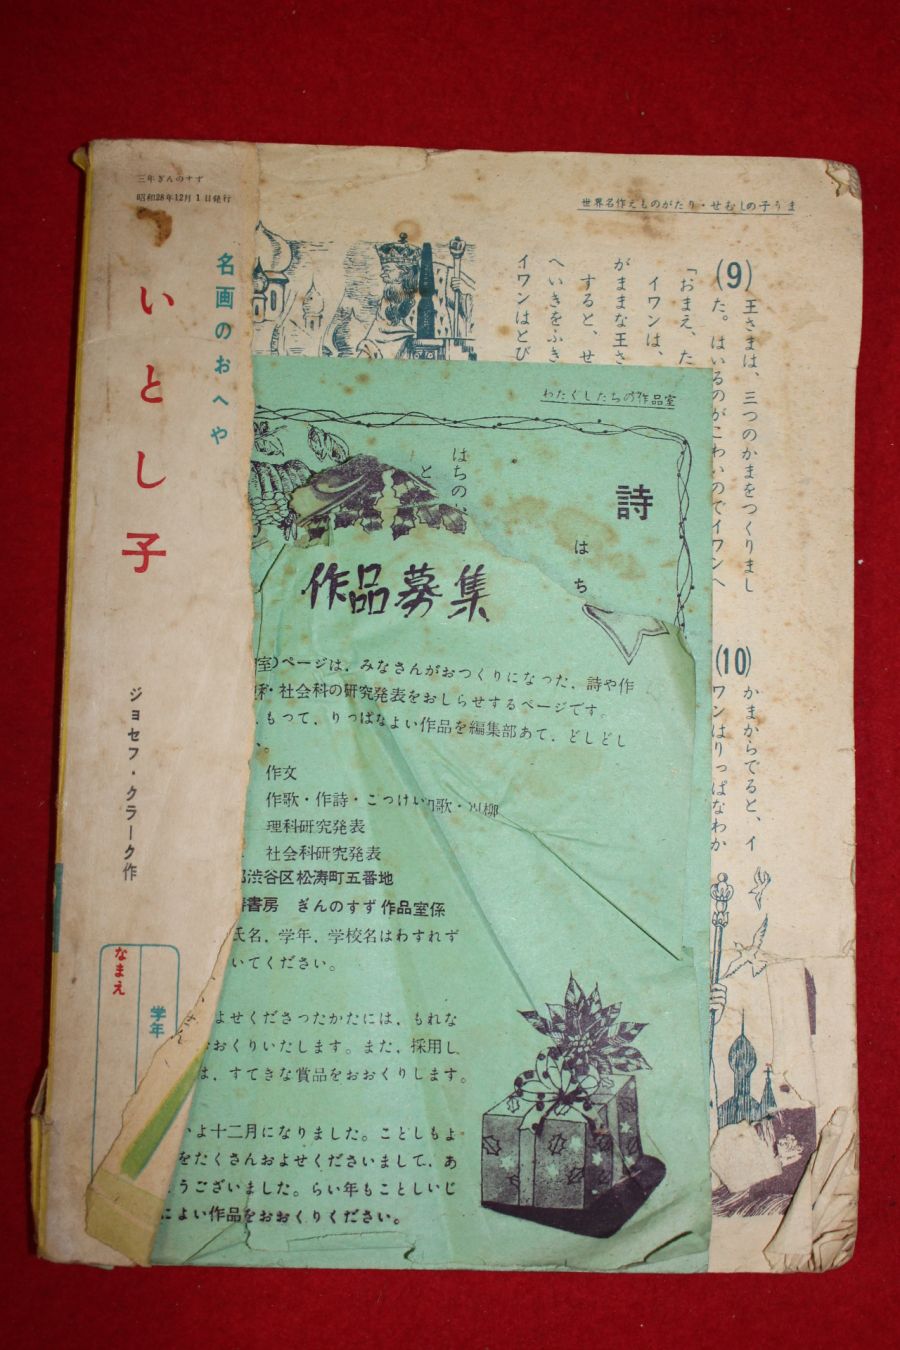 三年ぎんのすず
昭和28年12月1日発行
名画のおへや
いとし子
ジョセフ・クラーク作
なまえ
学年
世界名作えものがたり・せむしの子うま
(9)
王さまは、三つのかまをつくりまし
た。はいるのがこわいのでイワンへ
「おまえ、た
イワンは、
がままな王さ
すると、せ
へいきをふき
イワンはとび
(10)
かまからでると、イ
ワンはりっぱなわか
わたくしたちの作品室
詩
はち
はちの、
と
作品募集
室)ページは、みなさんがおつくりになった、詩や作
・社会科の研究発表をおしらせするページです。
もつて、りっぱなよい作品を編集部あて、どしどし
い。
作文
作歌・作詩・こっけい 歌・川柳
理科研究発表
社会科研究発表
渋谷区松涛町五番地
書房 ぎんのすず作品室係
氏名、学年、学校名はわすれず
いてください。
よせくださつたかたには、もれな
おくりいたします。また、採用し
は、すてきな賞品をおおくりします。
よ十二月になりました。ことしもよ
をたくさんおよせくださいまして、あ
うございました。らい年もことしいじ
によい作品をおおくりください。